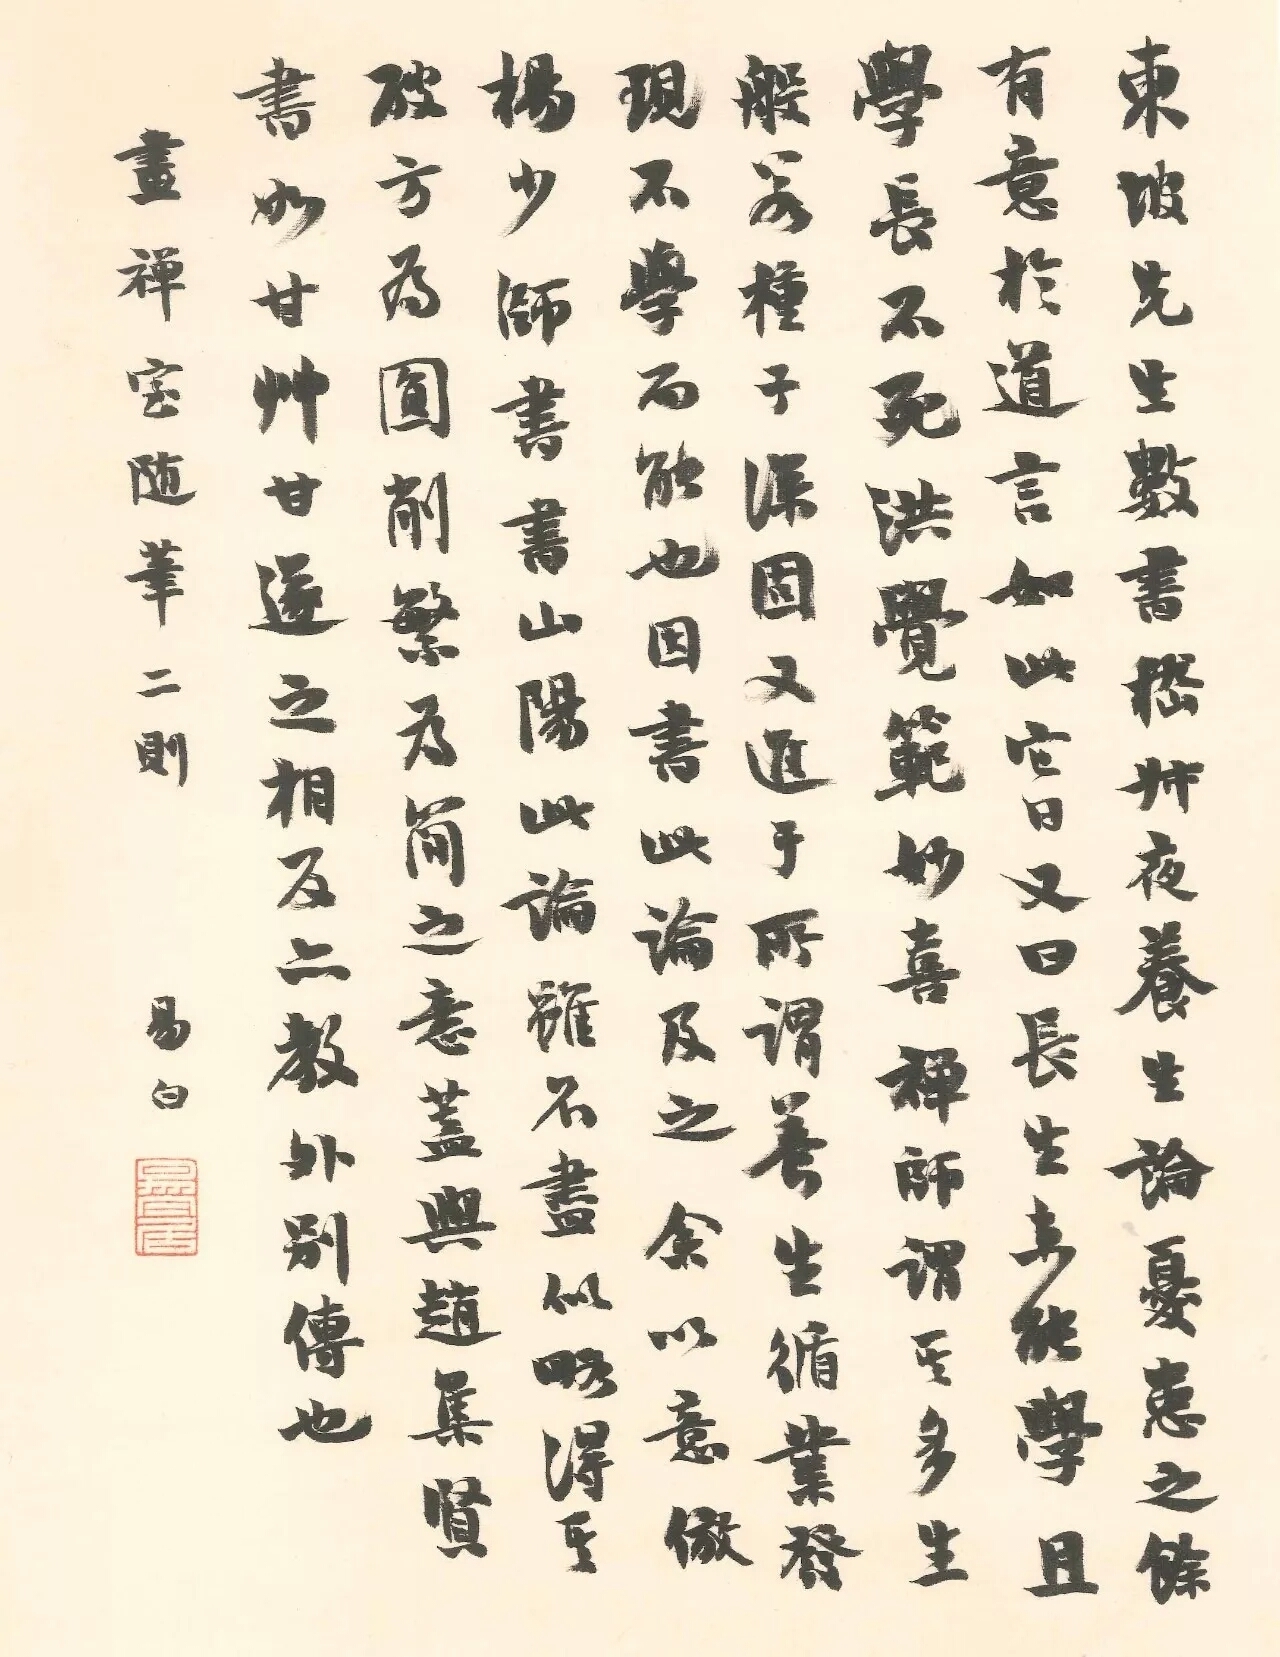 東坡先生數書嵇叔夜養生論憂患之餘
有意於道言如此它日又曰長生未能學且
學長不死洪覺範妙喜禪師謂其多生
般若種子深固又進于所謂善生循業發
現不學而能也因書此論及之 余以意倣
楊少師書書山陽此論雖不盡似略得其
破方為圓削繁為簡之意蓋與趙集賢
書如甘艸甘遂之相反亦教外別傳也
畫禪室随筆二則 易白